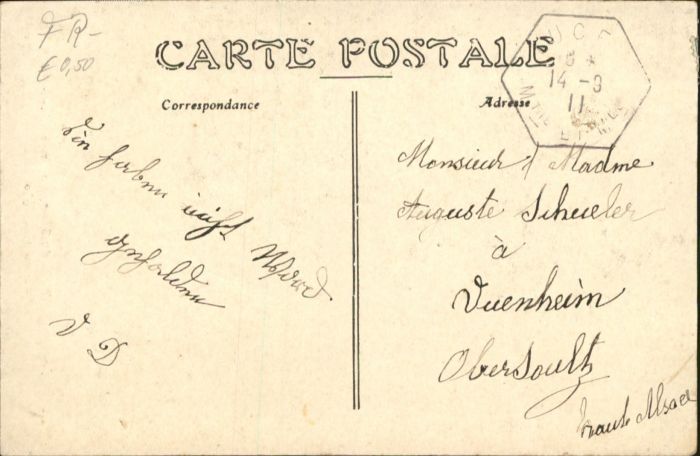 FR-
€0,50
CARTE POSTALE
Correspondance
Adresse
14 - 3
11
haben nicht
gehalten
V D
Monsieur / Madme
Auguste Schueler
à
Vuenheim
Obersoultz
Haute Alsace